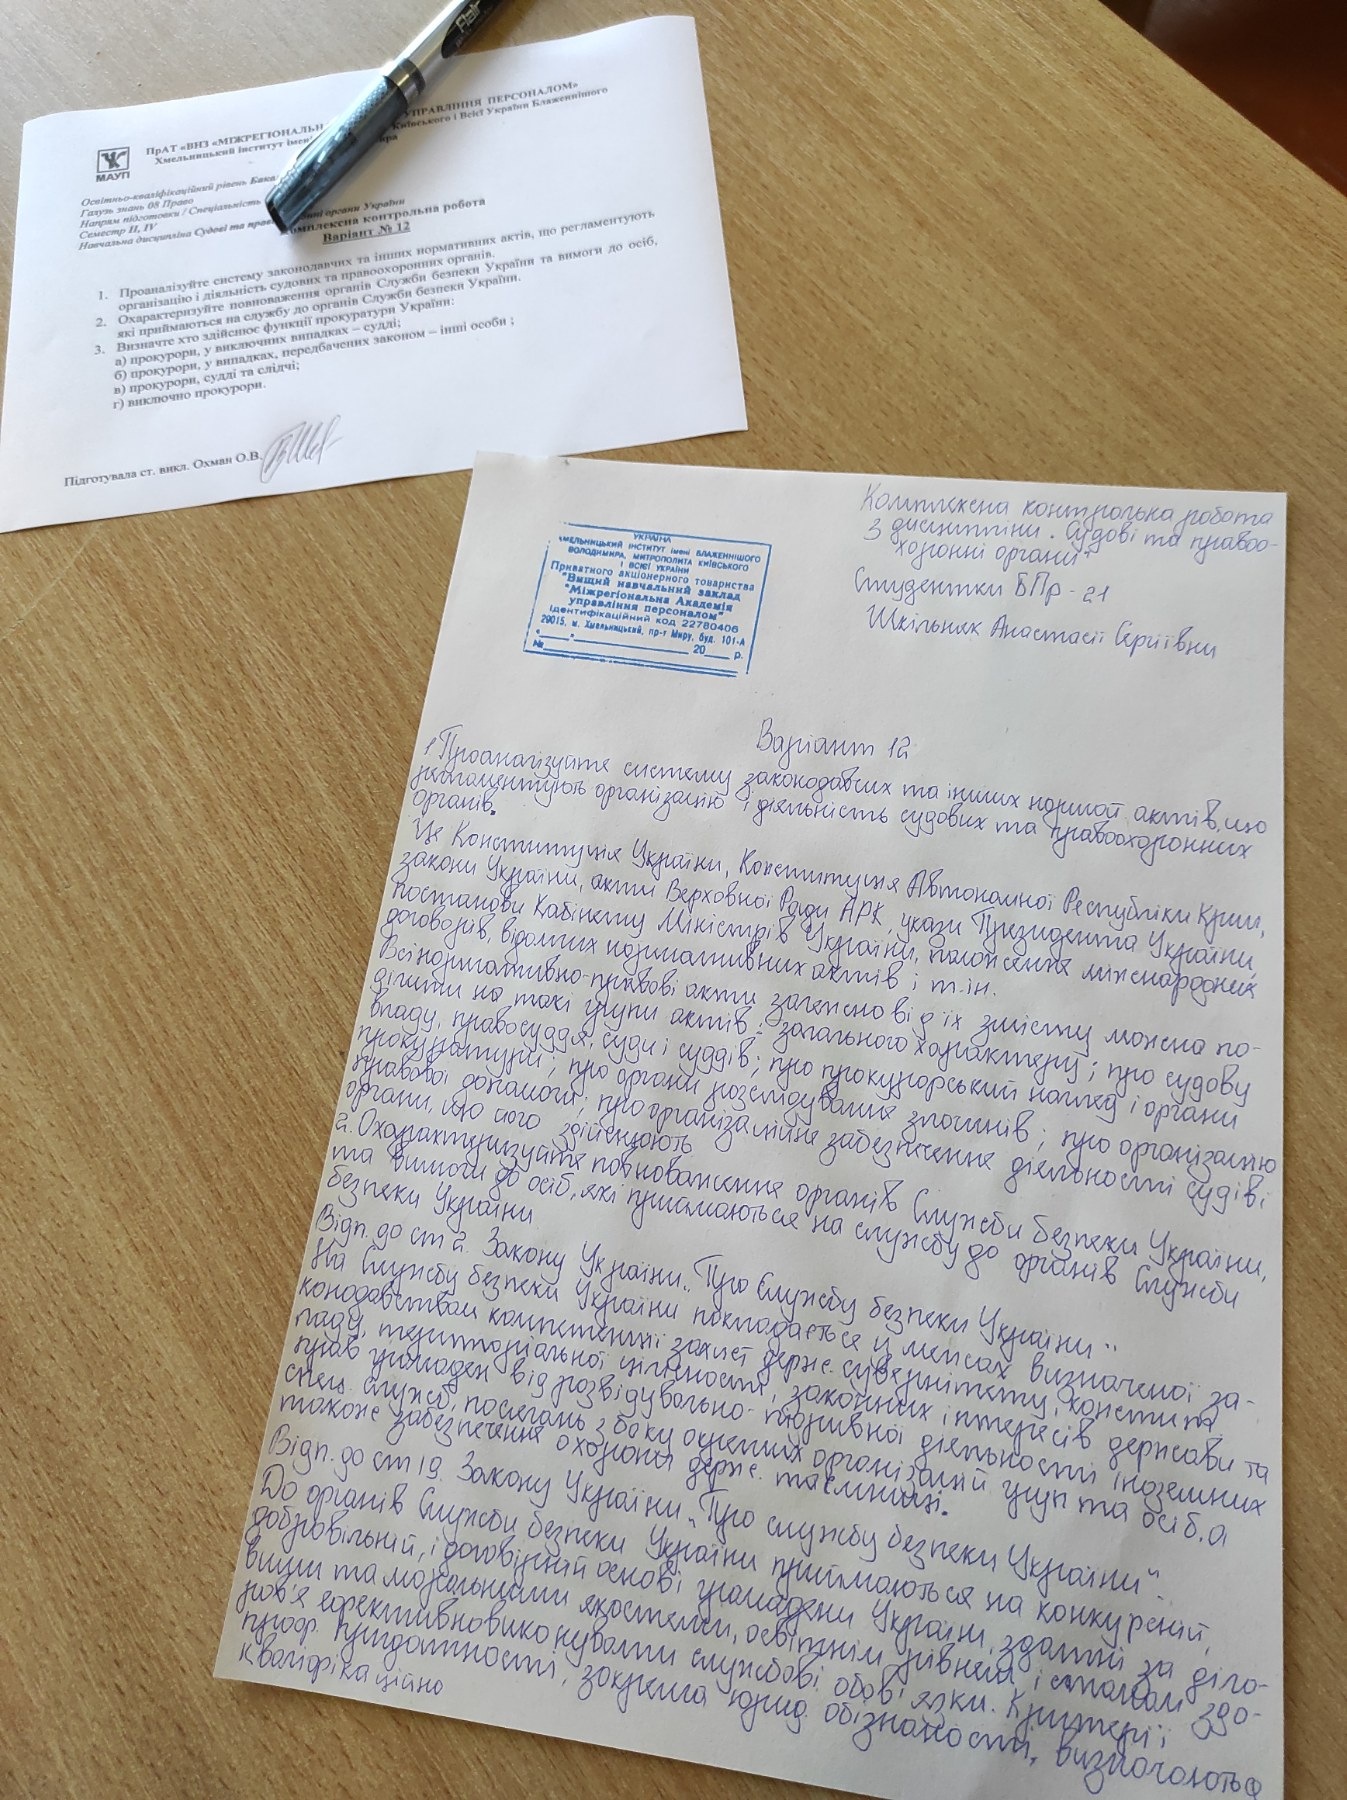 Flair
ПрАТ «ВНЗ «МІЖРЕГІОНАЛЬН УПРАВЛІННЯ ПЕРСОНАЛОМ»
Хмельницький інститут імені Київського і Всієї України Блаженнішого
МАУП
Освітньо-кваліфікаційний рівень
Галузь знань 08 Право
Напрям підготовки / Спеціальність
Семестр II, IV
Навчальна дисципліна Судові та органи України
контрольна робота
Варіант № 12
1. Проаналізуйте систему законодавчих та інших нормативних актів, що регламентують
організацію і діяльність судових та правоохоронних органів.
2. Охарактеризуйте повноваження органів Служби безпеки України та вимоги до осіб,
які приймаються на службу до органів Служби безпеки України.
3. Визначте хто здійснює функції прокуратури України:
а) прокурори, у виключних випадках – судді;
б) прокурори, у випадках, передбачених законом – інші особи ;
в) прокурори, судді та слідчі;
г) виключно прокурори.
Підготувала ст. викл. Охман О.В.
УКРАЇНА
ХМЕЛЬНИЦЬКИЙ ІНСТИТУТ імені БЛАЖЕННІШОГО
ВОЛОДИМИРА, МИТРОПОЛИТА КИЇВСЬКОГО
І ВСІЄЇ УКРАЇНИ
Приватного акціонерного товариства
"Вищий навчальний заклад
"Міжрегіональна Академія
управління персоналом"
Ідентифікаційний код 22780406
29015, м. Хмельницький, пр-т Миру, буд. 101-А
"___"___ 20___ р.
№
Комплексна контрольна робота
З дисципліни „Судові та правоо-
хоронні органи"
Студентки БПр-21
Шкільняк Анастасії Сергіївни
Варіант 12
1 Проаналізуйте систему законодавчих та інших нормат. актів, що
регламентують організацію і діяльність судових та правоохоронних
органів.
Це Конституція України, Конституція Автономної Республіки Крим,
закони України, акти Верховної Ради АРК, укази Президента України,
постанови Кабінету Міністрів України, положення міжнародних
договорів, відомчих нормативних актів і т.ін.
Всі нормативно-правові акти залежно від їх змісту можна по-
ділити на такі групи актів: загального характеру; про судову
владу, правосуддя, суди і суддів; про прокурорський нагляд і органи
прокуратури; про органи розслідування злочинів; про організацію
правової допомоги; про організаційне забезпечення діяльності судів і
органи, що його здійснюють
2. Охарактеризуйте повноваження органів Служби безпеки України,
та вимоги до осіб, які приймаються на службу до органів Служби
безпеки України
Відп. до ст 2. Закону України „Про Службу безпеки України"
На Службу безпеки України покладається у межах визначеної за-
конодавством компетенції захист держ. суверенітету, констит.
ладу, територіальної цілісності, законних інтересів держави та
прав громадян від розвідувально-підривної діяльності іноземних
спец. служб, посягань з боку окремих організацій, груп та осіб, а
також забезпечення охорони держ. таємниці.
Відп. до ст 19. Закону України „Про службу безпеки України"
До органів Служби безпеки України приймаються на конкурсній,
добровільній, і договірній основі громадяни України, здатні за діло-
вими та моральними якостями, освітнім рівнем і станом здо-
ров'я ефективно виконувати службові обов'язки. Критерії
проф. придатності, зокрема юрид. обізнаності, визначаються
кваліфікаційно